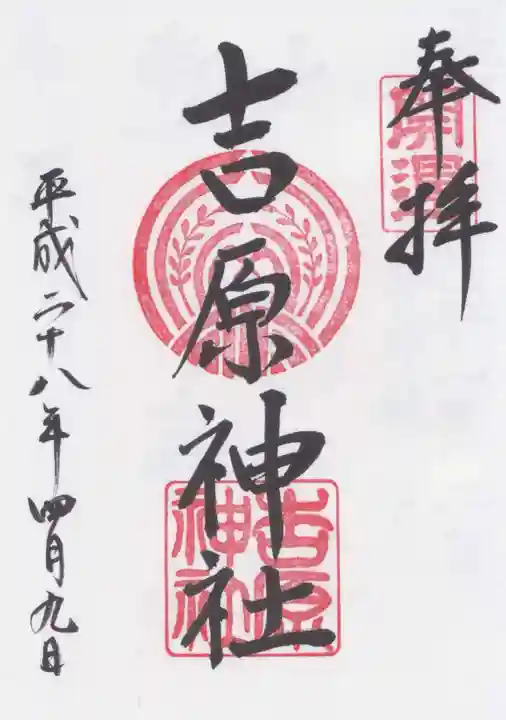 奉拝
吉原神社
平成二十八年四月九日
吉原
神社